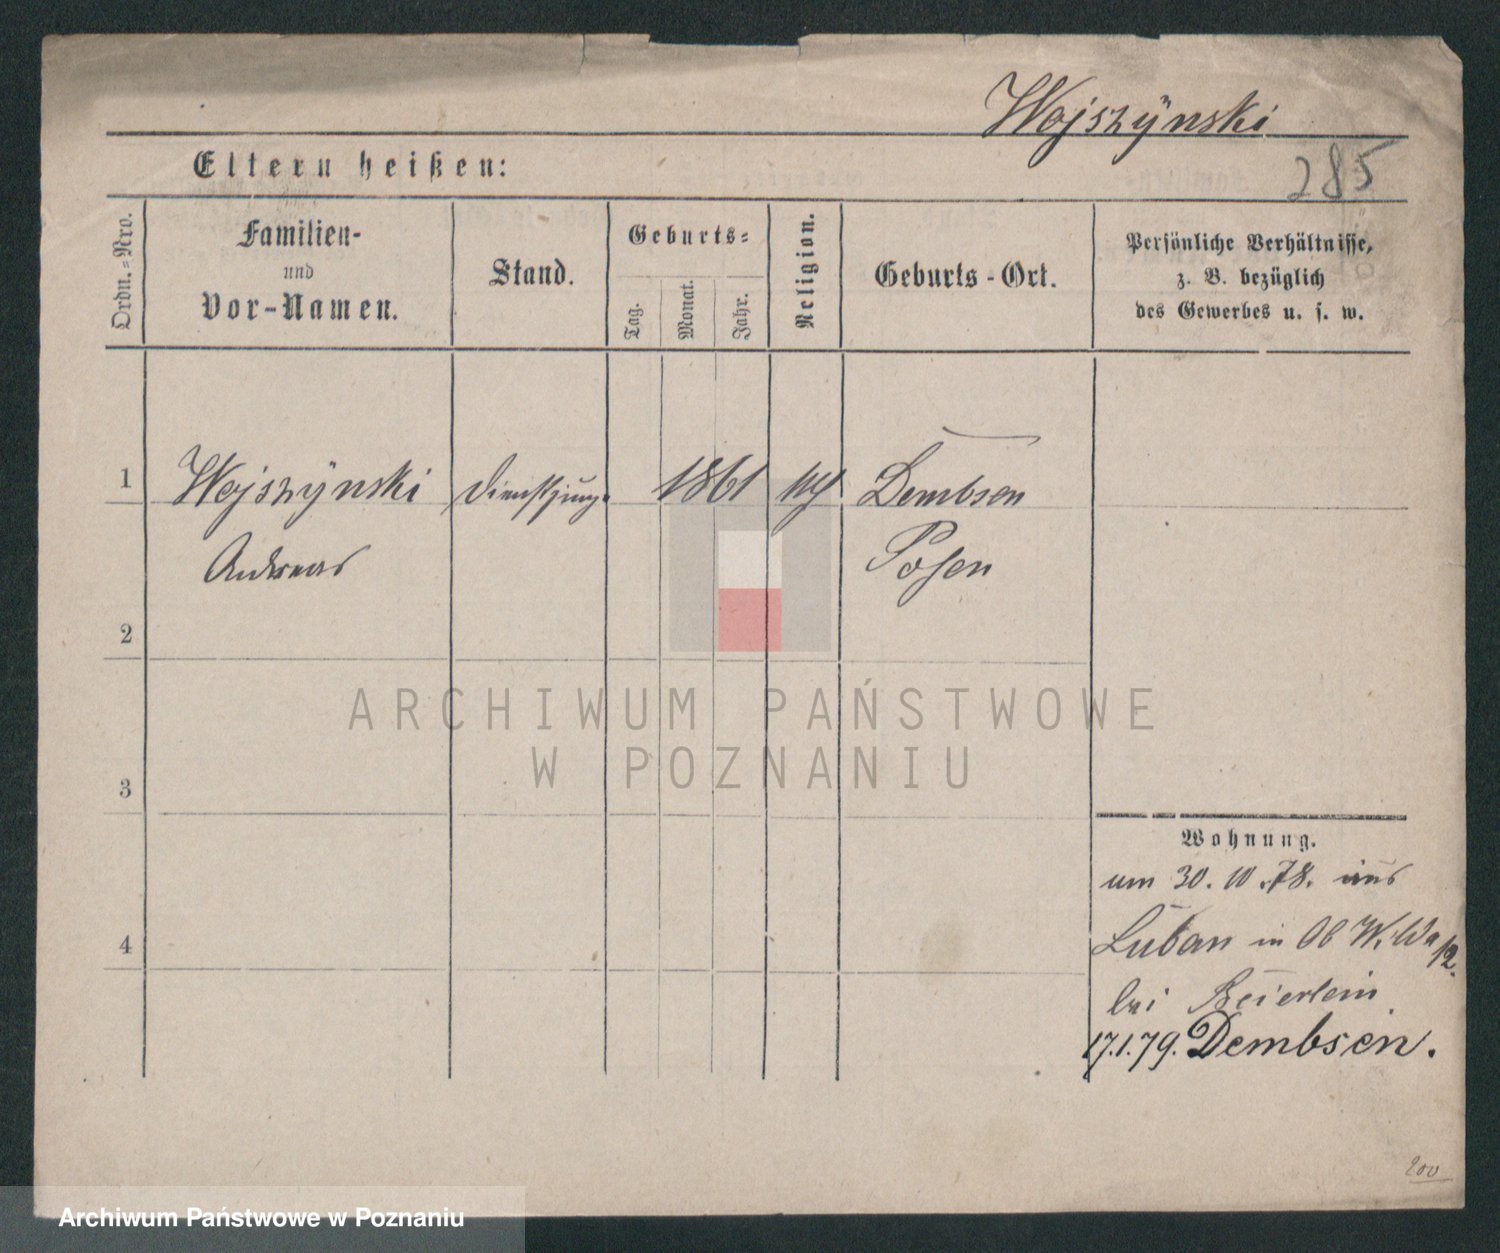 Wojszÿnski
285
Eltern heißen:
Ordn.-Nro.
Familien-
und
Vor-Namen.
Stand.
Geburts-
Tag.
Monat.
Jahr.
Religion.
Geburts-Ort.
Persönliche Verhältnisse,
z. B. bezüglich
des Gewerbes u. s. w.
1
Wojszÿnski
Dienstjunge
1861
Dembsen
Andreas
Posen
2
3
4
Wohnung.
um 30. 10. 78. aus
Luban in Ob W. Wa 12.
bei Beierlein
17.1.79. Dembsen.
200
ARCHIWUM PAŃSTWOWE
W POZNANIU
Archiwum Państwowe w Poznaniu